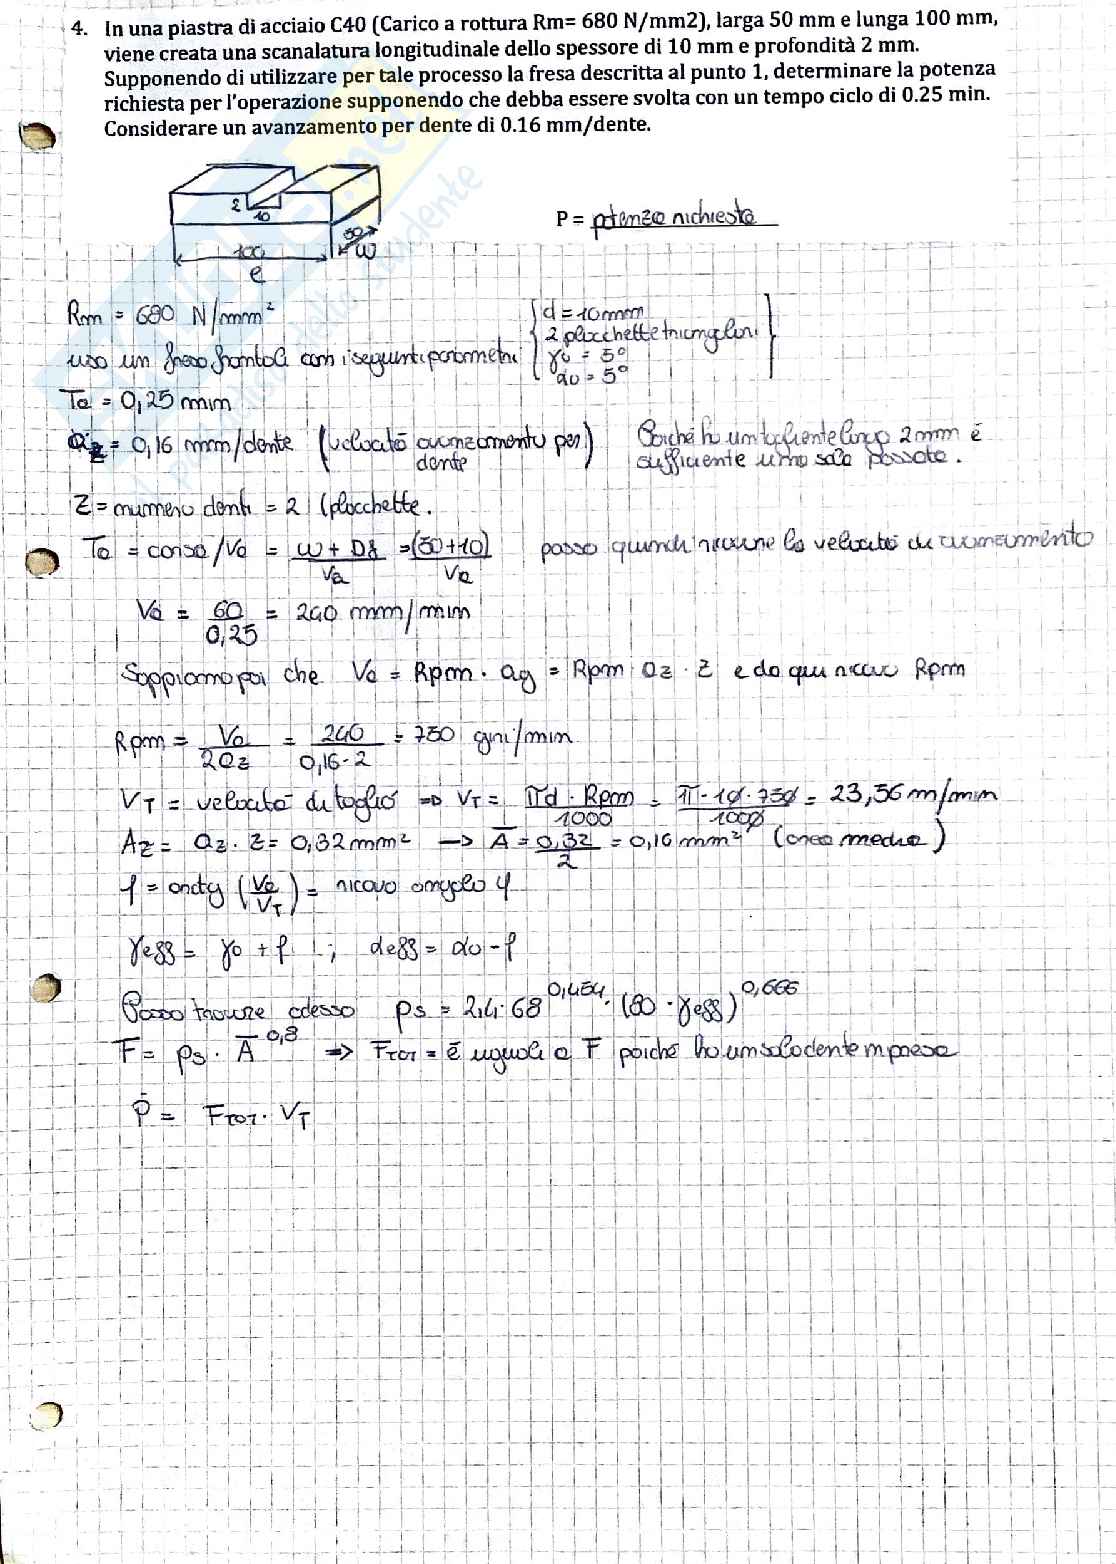 4. In una piastra di acciaio C40 (Carico a rottura Rm= 680 N/mm2), larga 50 mm e lunga 100 mm,
viene creata una scanalatura longitudinale dello spessore di 10 mm e profondità 2 mm.
Supponendo di utilizzare per tale processo la fresa descritta al punto 1, determinare la potenza
richiesta per l'operazione supponendo che debba essere svolta con un tempo ciclo di 0.25 min.
Considerare un avanzamento per dente di 0.16 mm/dente.
2
10
P = potenza richiesta
50
100
w
e
Rm = 680 N/mm²
d = 10 mm
2 placchette triangolari
uso un fresa frontale con i seguenti parametri
γo = 5°
αo = 5°
Ta = 0,25 min
az = 0,16 mm/dente (velocità avanzamento per dente)
Poiché ho un tagliente lungo 2mm è
sufficiente una sola passata.
Z = numero denti = 2 (placchette.
Ta = corsa/Va = w + Df / Va = (50+10) / Va posso quindi ricavare la velocità di avanzamento
Va = 60 / 0,25 = 240 mm/min
Sappiamo poi che Va = Rpm · ag = Rpm · az · Z e da qui ricavo Rpm
Rpm = Va / 2az = 240 / 0,16·2 = 750 giri/min
VT = velocità di taglio => VT = πd · Rpm / 1000 = π·10·750 / 1000 = 23,56 m/min
Az = az · Z = 0,32 mm² → A̅ = 0,32 / 2 = 0,16 mm² (area media)
f = arctg (Va / VT) = ricavo angolo φ
γeff = γo + f ; αeff = αo - f
Posso trovare adesso ps = 2,4 · 68^0,454 · (80 · γeff)^0,666
F = ps · A̅^0,8 => FTOT = è uguale a F poiché ho un solo dente in presa
P = FTOT · VT